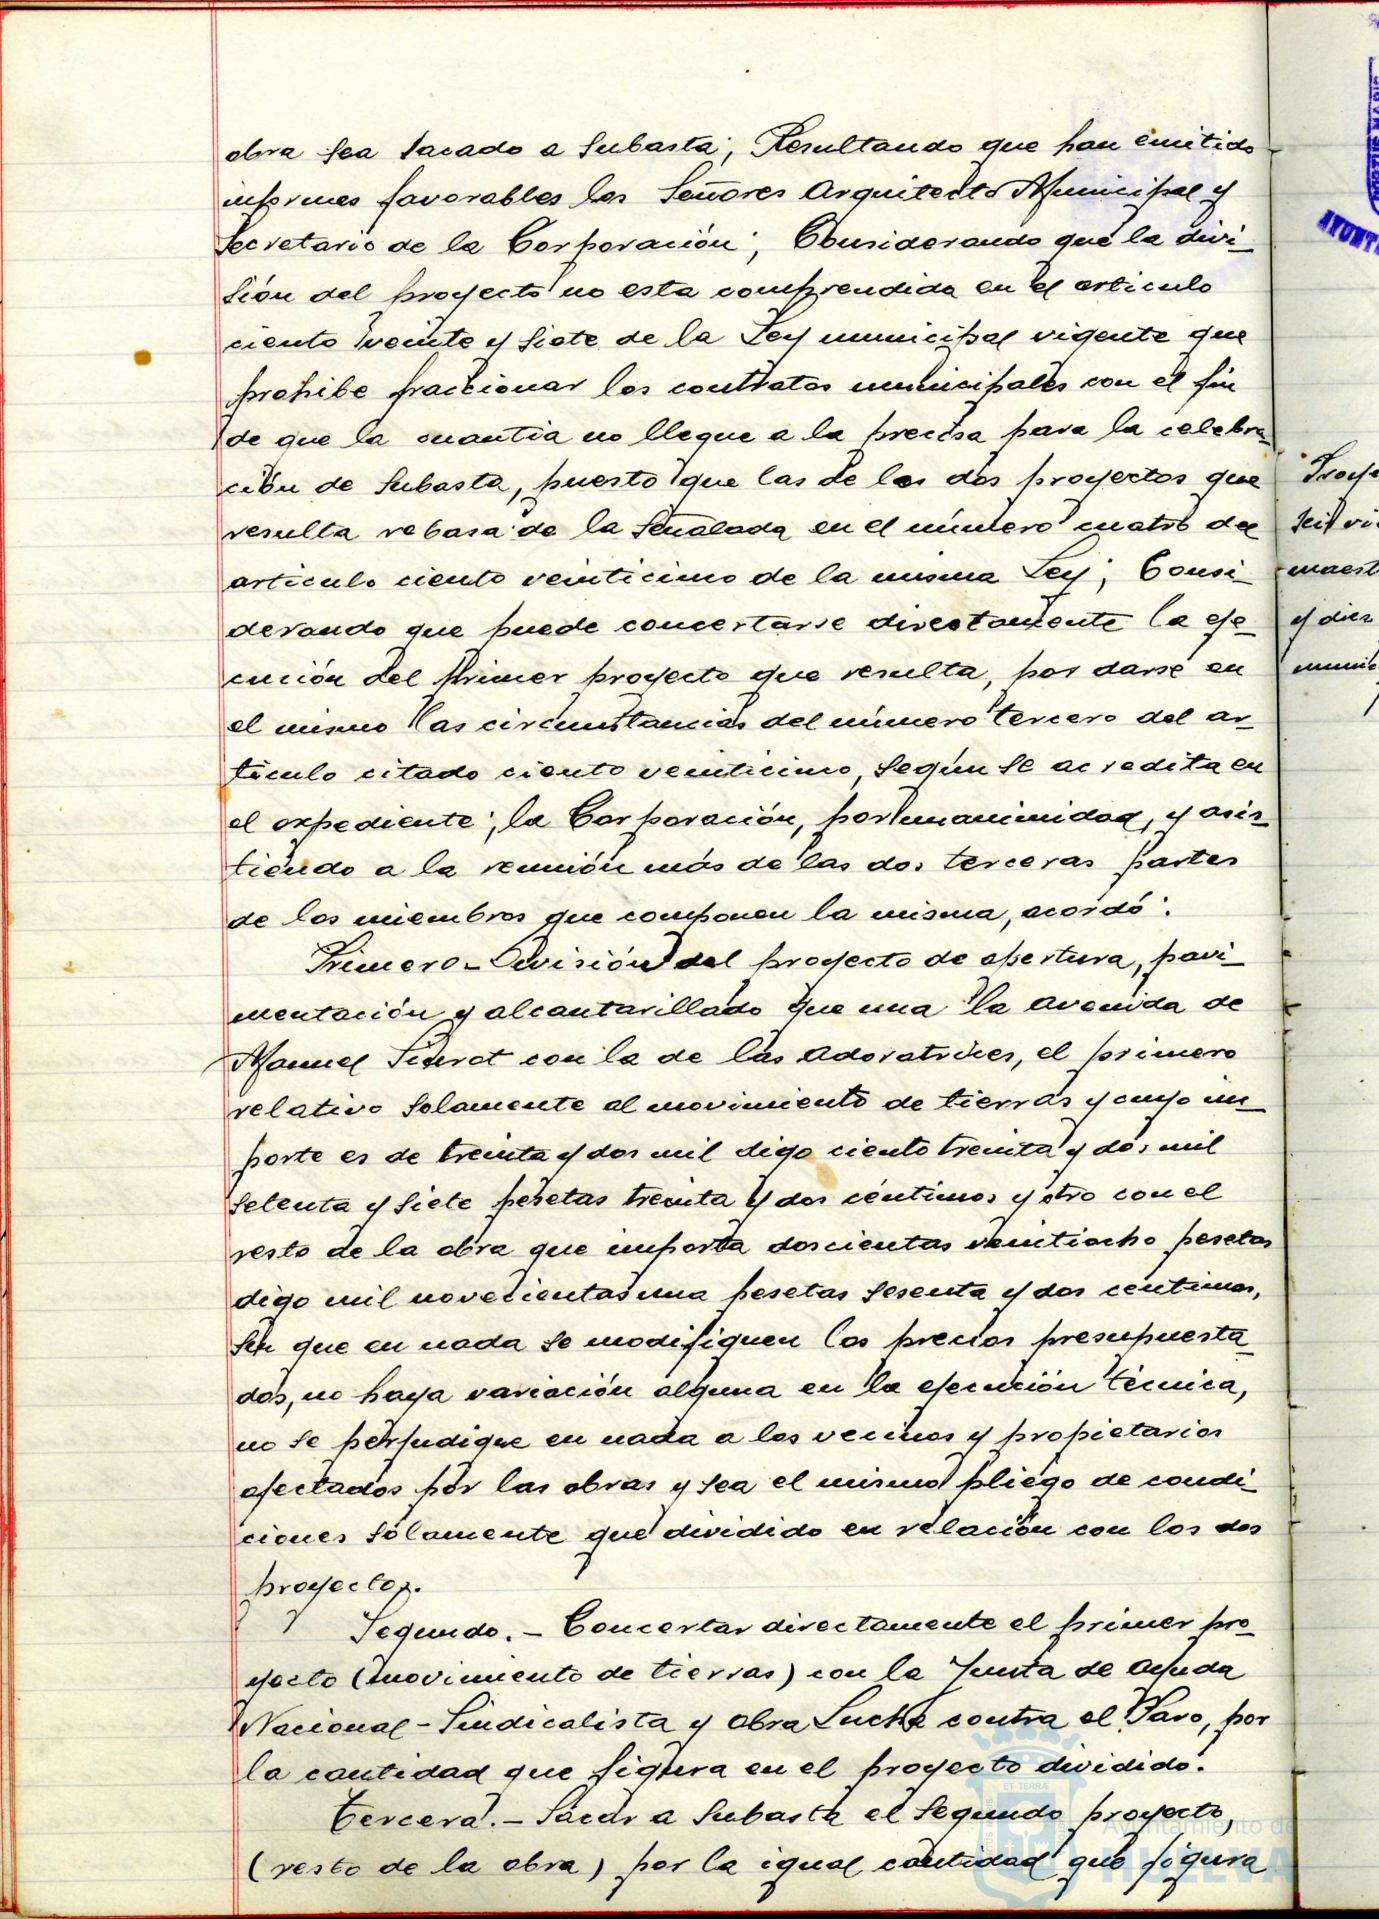 obra sea sacado a subasta; Resultando que han emitido
informes favorables los Señores Arquitecto Municipal y
Secretario de la Corporación; Considerando que la divi-
sión del proyecto no esta comprendida en el articulo
ciento veinte y siete de la Ley municipal vigente que
prohibe fraccionar los contratos municipales con el fin
de que la cuantia no llegue a la precisa para la celebra-
ción de subasta, puesto que las de los dos proyectos que
resulta rebasa de la señalada en el número cuatro del
articulo ciento veinticinco de la misma Ley; Consi-
derando que puede concertarse directamente la eje-
cución del primer proyecto que resulta, por darse en
el mismo las circunstancias del número tercero del ar-
tículo citado ciento veinticinco, según se acredita en
el expediente; la Corporación, por unanimidad, y asis-
tiendo a la reunión más de las dos terceras partes
de los miembros que componen la misma, acordó:
Primero - División del proyecto de apertura, pavi-
mentación y alcantarillado que una la Avenida de
Manuel Siurot con la de las Adoratrices, el primero
relativo solamente al movimiento de tierras y cuyo im-
porte es de treinta y dos mil digo ciento treinta y dos mil
setenta y siete pesetas treinta y dos céntimos y otro con el
resto de la obra que importa doscientas veintiocho pesetas
digo mil novecientas una pesetas sesenta y dos centimos,
sin que en nada se modifiquen los precios presupuesta-
dos, no haya variación alguna en la ejecución técnica,
no se perjudique en nada a los vecinos y propietarios
afectados por las obras y sea el mismo pliego de condi-
ciones sólamente que dividido en relación con los dos
proyectos.
Segundo. - Concertar directamente el primer pro-
yecto (movimiento de tierras) con la Junta de Ayuda
Nacional - Sindicalista y Obra Lucha contra el Paro, por
la cantidad que figura en el proyecto dividido.
Tercera. - Sacar a subasta el segundo proyecto,
(resto de la obra) por la igual cantidad que figura
Proye
maest
y diez
ET TERRÆ
Ayuntamiento de
HUELVA